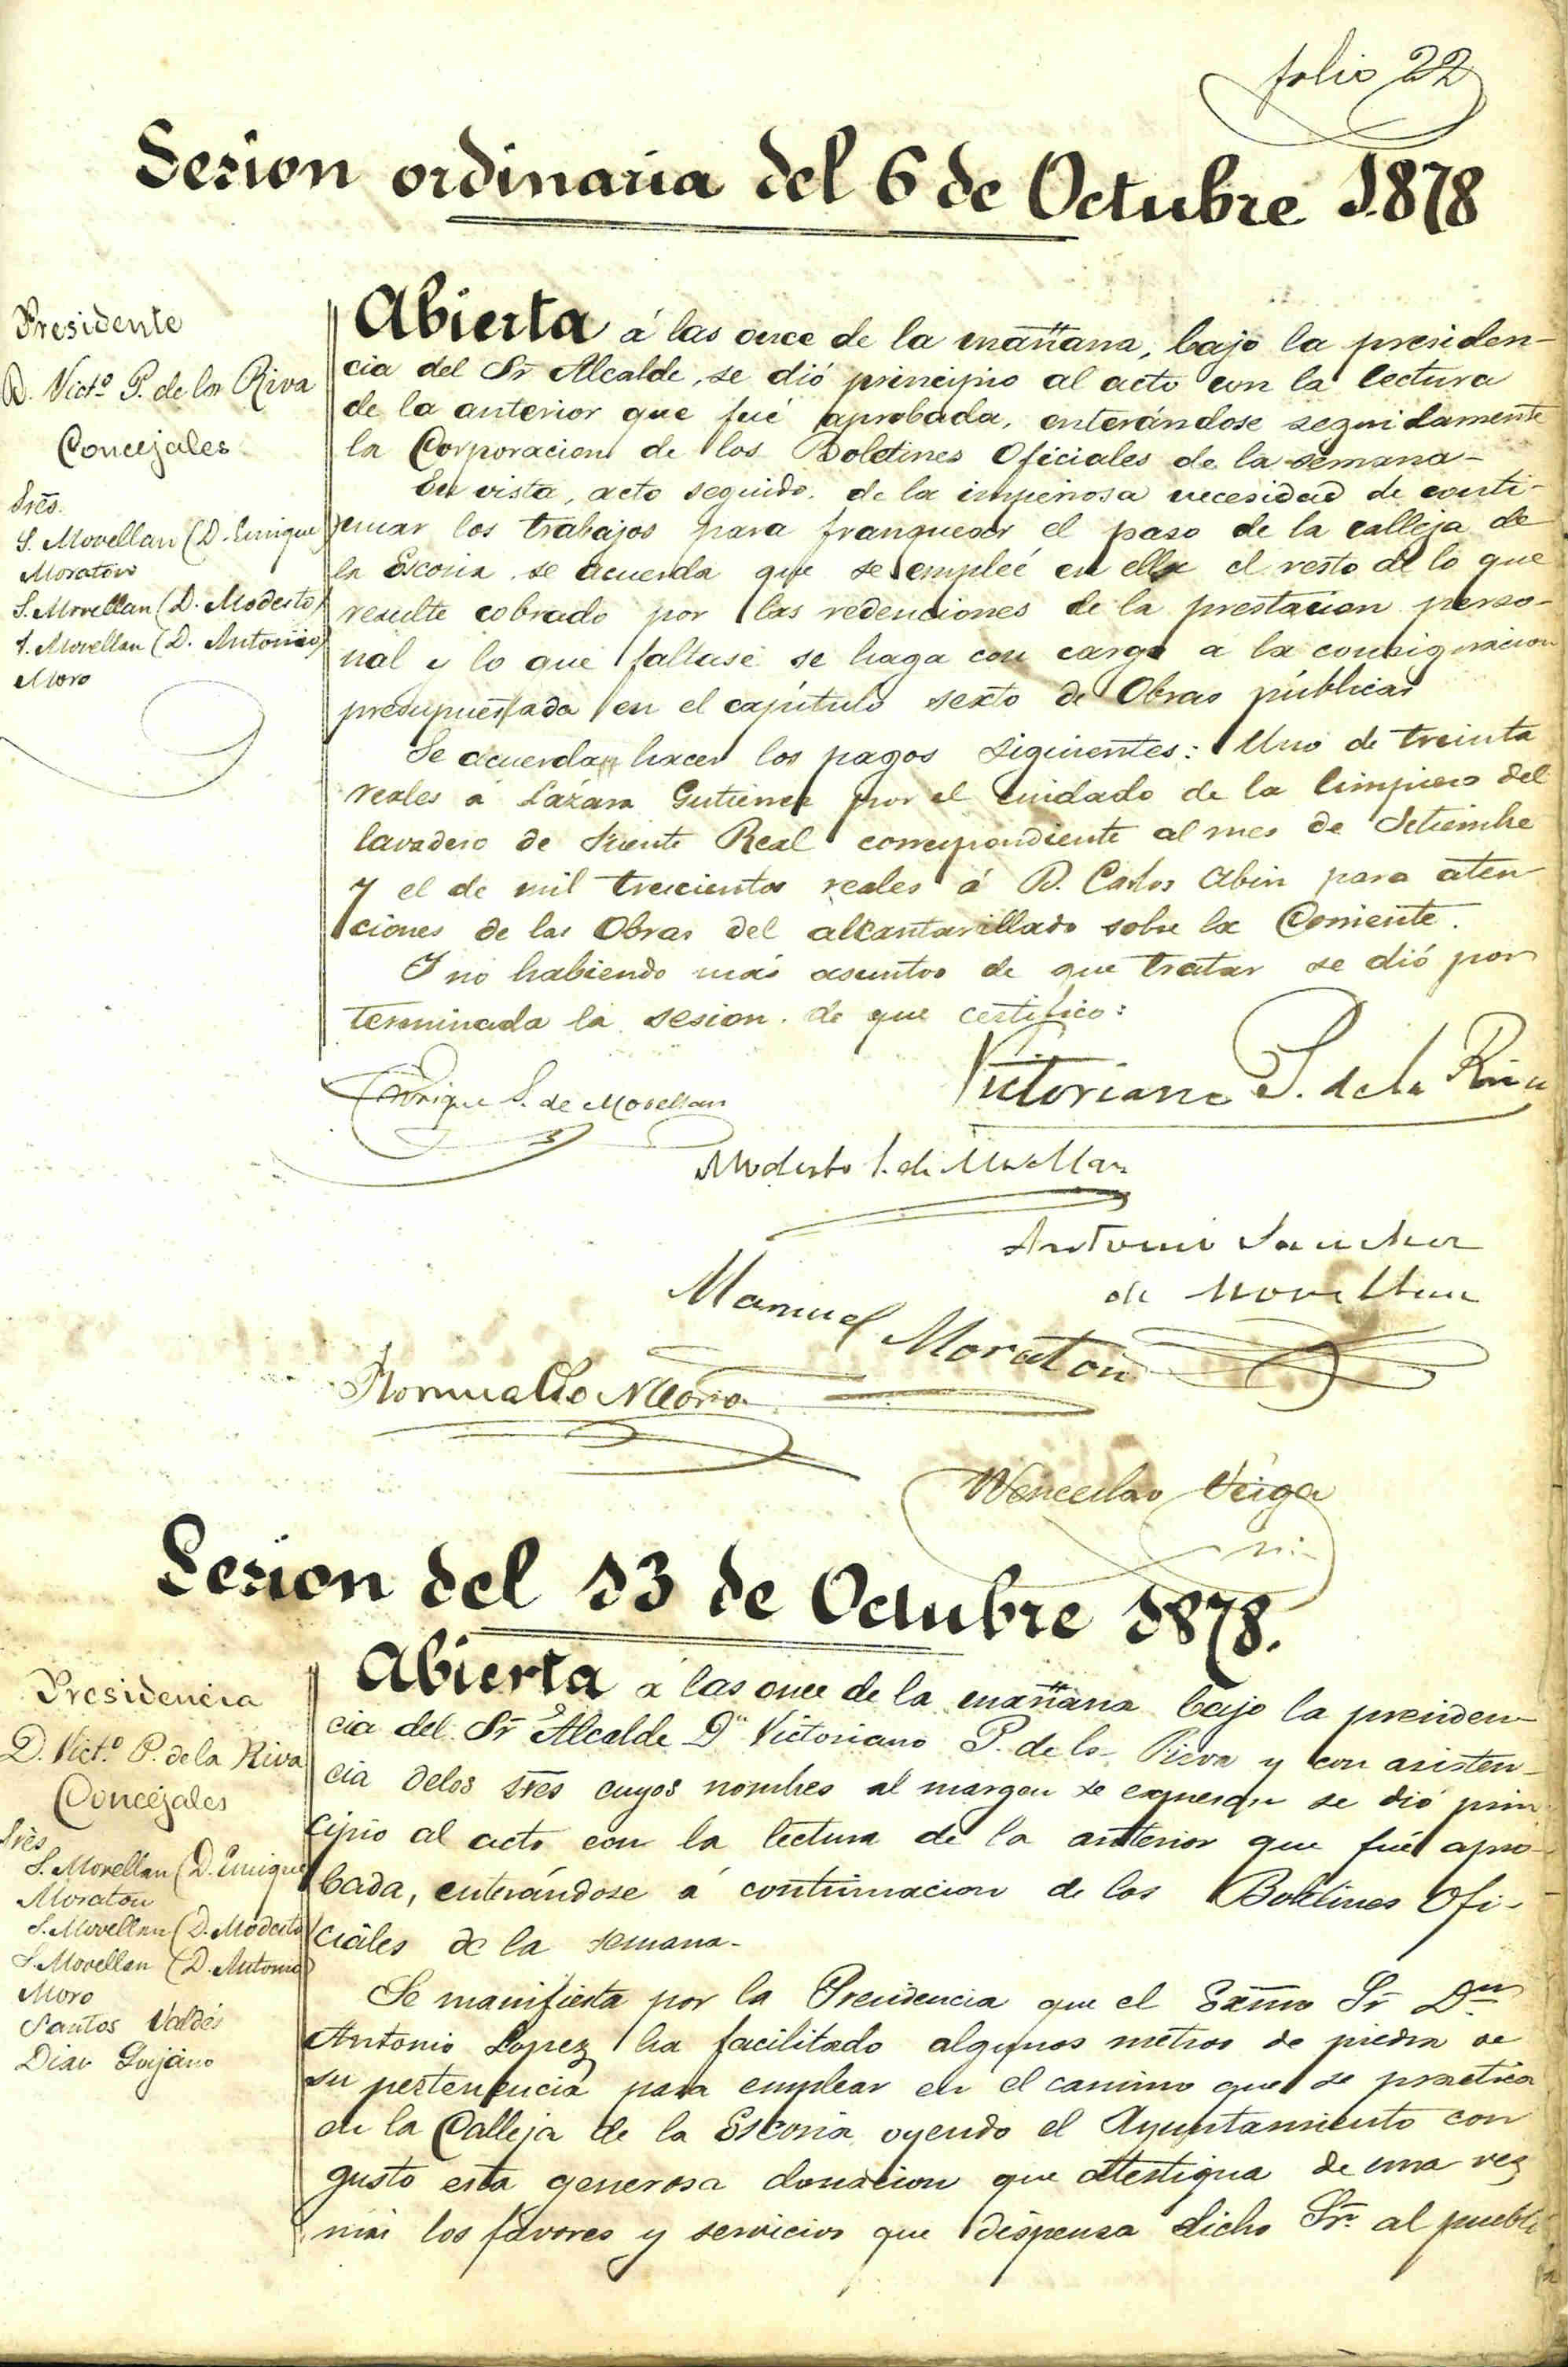 folio 22
Sesion ordinaria del 6 de Octubre 1.878
Presidente
D. Vict.º P. de la Riva
Concejales
Sres.
S. Movellan (D. Enrique)
Moraton
S. Movellan (D. Modesto)
S. Movellan (D. Antonio)
Moro
Abierta á las once de la mañana, bajo la presiden-
cia del Sr Alcalde, se dió principio al acto con la lectura
de la anterior que fué aprobada, enterándose seguidamente
la Corporacion de los Boletines Oficiales de la semana-
En vista, acto seguido, de la imperiosa necesidad de conti-
nuar los trabajos para franquear el paso de la calleja de
la Escoria se acuerda que se empleé en ella el resto de lo que
resulte cobrado por las redenciones de la prestacion perso-
nal y lo que faltase se haga con cargo a la consignacion
presupuestada en el capítulo sexto de Obras públicas
Se acuerdan hacer los pagos siguientes: Uno de treinta
reales á Lázara Gutierrez por el cuidado de la limpieza del
lavadero de Fuente Real correspondiente al mes de Setiembre
y el de mil trescientos reales á D. Carlos Abin para aten
ciones de las Obras del alcantarillado sobre la Corriente.
Y no habiendo más asuntos de que tratar se dió por
terminada la sesion. de que certifico:
Enrique S. de Movellan
Victoriano P. de la Riva
Modesto S. de Movellan
Antonio Sanchez
de Movellan
Manuel Moraton
Romualdo Moro
Wenceslao Veiga
Sesion del 13 de Octubre 1878.
Presidencia
D. Vict.º P. de la Riva
Concejales
Sres
S. Movellan (D. Enrique
Moraton
S. Movellan (D. Modesto
S. Movellan (D. Antonio)
Moro
Santos Valdés
Diaz Quijano
Abierta á las once de la mañana bajo la presiden
cia del Sr Alcalde Dn Victoriano P. de la Riva y con asisten-
cia delos Sres cuyos nombres al margen se expresan se dió prin
cipio al acto con la lectura de la anterior que fué apro-
bada, enterándose á continuacion de los Boletines Ofi-
ciales de la semana-
Se manifiesta por la Presidencia que el Exmo Sr Dn
Antonio Lopez ha facilitado algunos metros de piedra de
su pertenencia para emplear en el camino que se practica
en la Calleja de la Escoria, oyendo el Ayuntamiento con
gusto esta generosa donacion que atestigua de una vez
mas los favores y servicios que dispensa dicho Sr. al pueblo